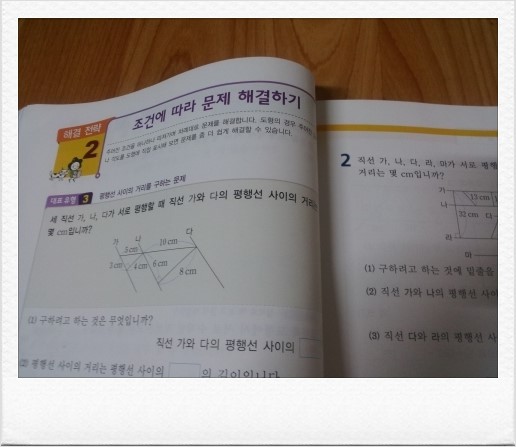 해결 전략
2
조건에 따라 문제 해결하기
주어진 조건을 하나하나 따져가며 차례대로 문제를 해결합니다. 도형의 경우 주어진
나 각도를 도형에 직접 표시해 보면 문제를 좀 더 쉽게 해결할 수 있습니다.
대표 유형 3 평행선 사이의 거리를 구하는 문제
세 직선 가, 나, 다가 서로 평행할 때 직선 가와 다의 평행선 사이의 거리
몇 cm입니까?
가 나 다
5 cm 10 cm
3 cm 4 cm 6 cm
8 cm
(1) 구하려고 하는 것은 무엇입니까?
직선 가와 다의 평행선 사이의
(2) 평행선 사이의 거리는 평행선 사이의 의 길이입니다
2 직선 가, 나, 다, 라, 마가 서로 평행
거리는 몇 cm입니까?
가
나 13 cm
32 cm
라
마
(1) 구하려고 하는 것에 밑줄을
(2) 직선 가와 나의 평행선 사이
(3) 직선 다와 라의 평행선 사